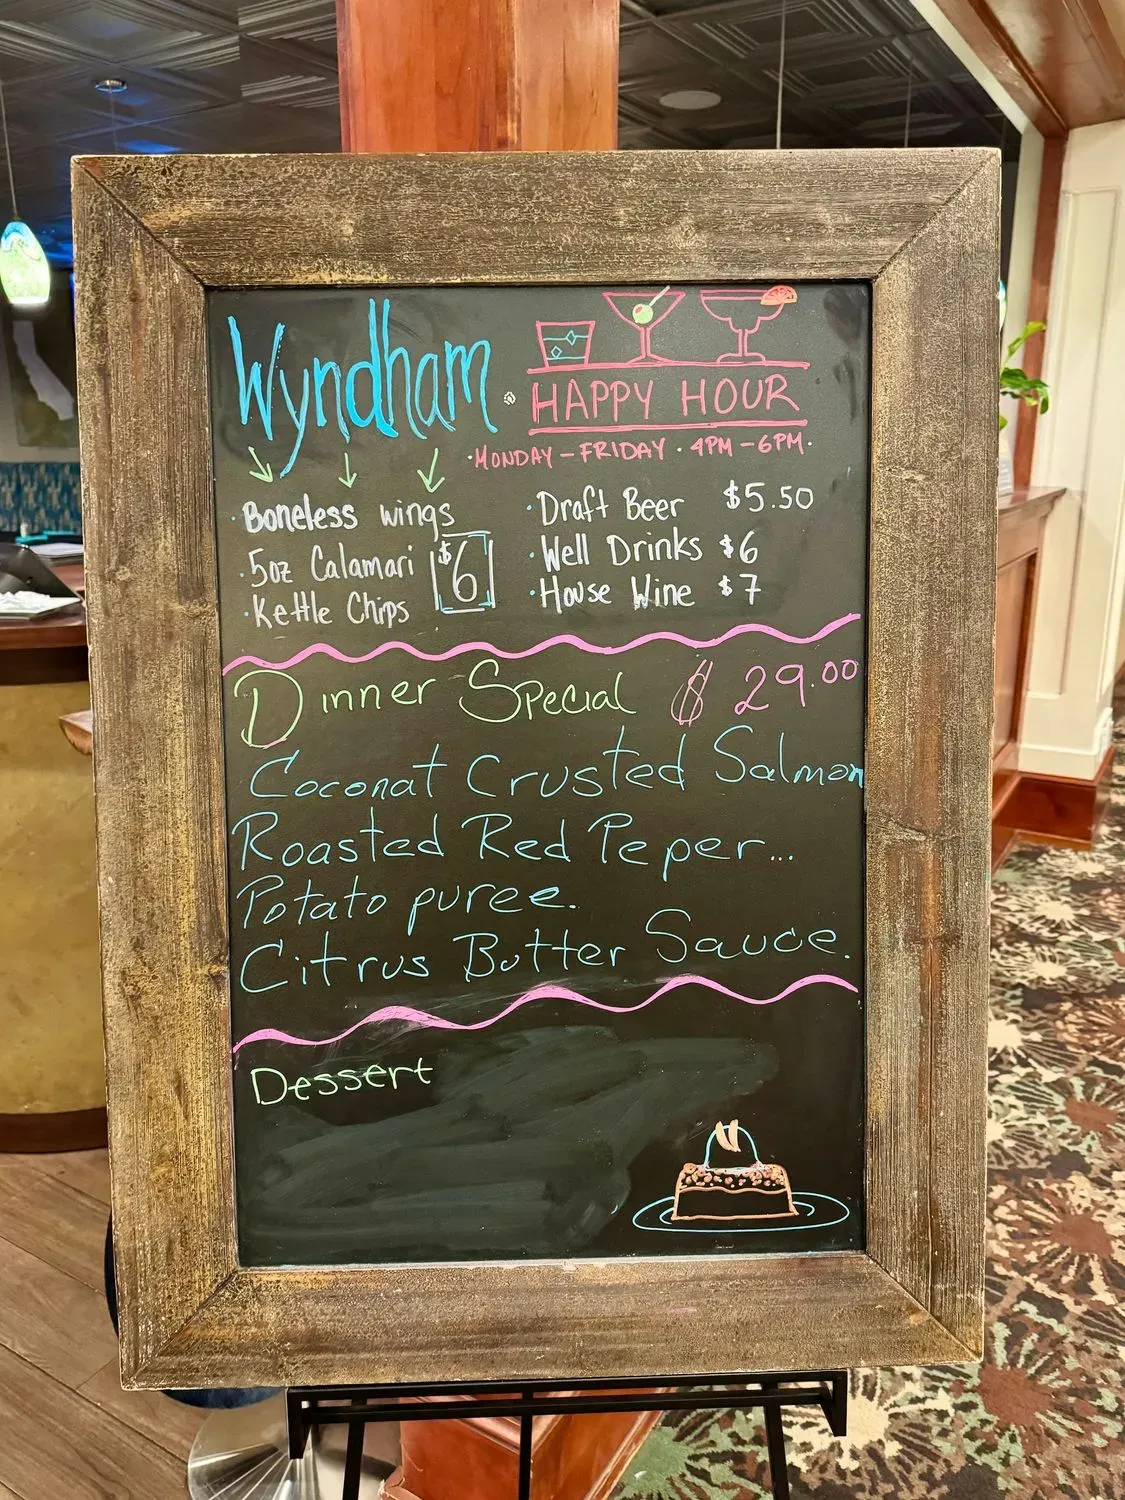 Wyndham
HAPPY HOUR
·MONDAY – FRIDAY · 4PM – 6PM·
· Boneless wings
· 5oz Calamari
· Kettle Chips
$6
· Draft Beer $5.50
· Well Drinks $6
· House Wine $7
Dinner Special $29.00
Coconat Crusted Salmon
Roasted Red Peper...
Potato puree.
Citrus Butter Sauce.
Dessert